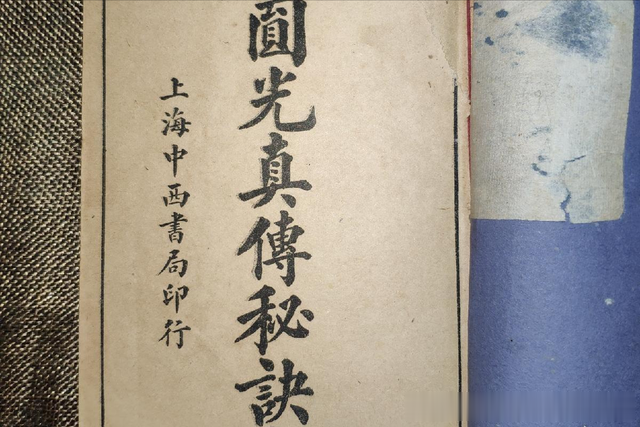 圓光真傳秘訣
上海中西書局印行